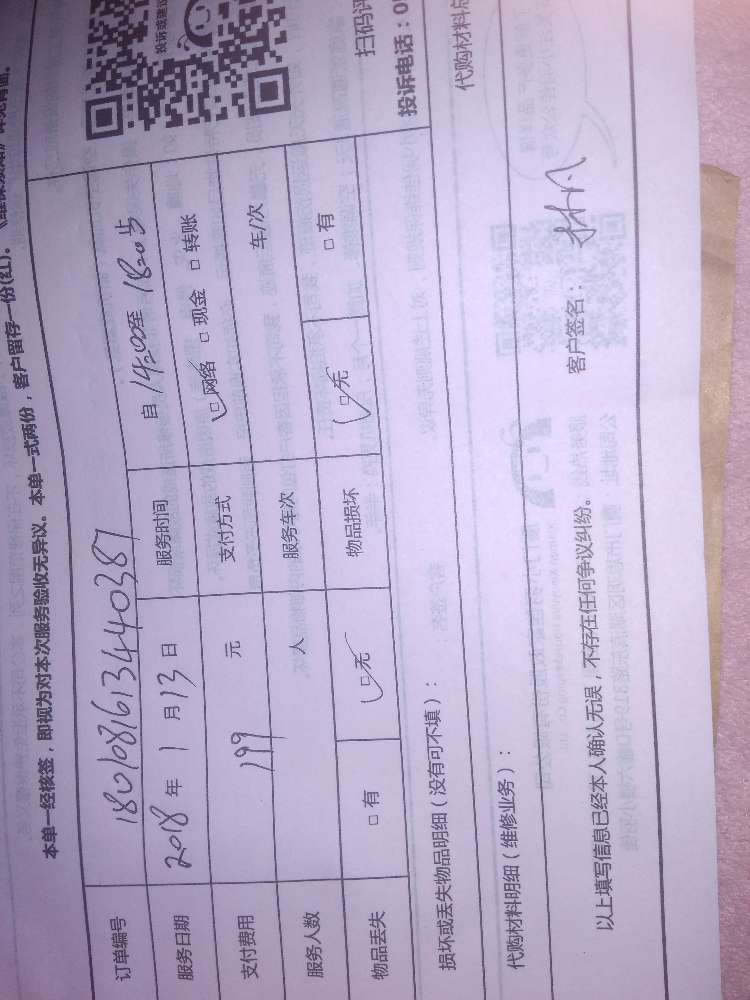 本单一经核签，即视为对本次服务验收无异议。本单一式两份，客户留存一份(红)。
订单编号 18010816134440387
服务日期 2018 年 1 月 13 日 服务时间 自 14:00 至
支付费用 199 元 支付方式 □ 网络 □ 现金 □ 转账
服务人数 人 服务车次 车/次
物品丢失 □ 有 □ 无 物品损坏 □ 无 □ 有
投诉或建议
扫码评
投诉电话：0
损坏或丢失物品明细（没有可不填）：
代购材料明细（维修业务）：
代购材料总
以上填写信息已经本人确认无误，不存在任何争议纠纷。 客户签名：